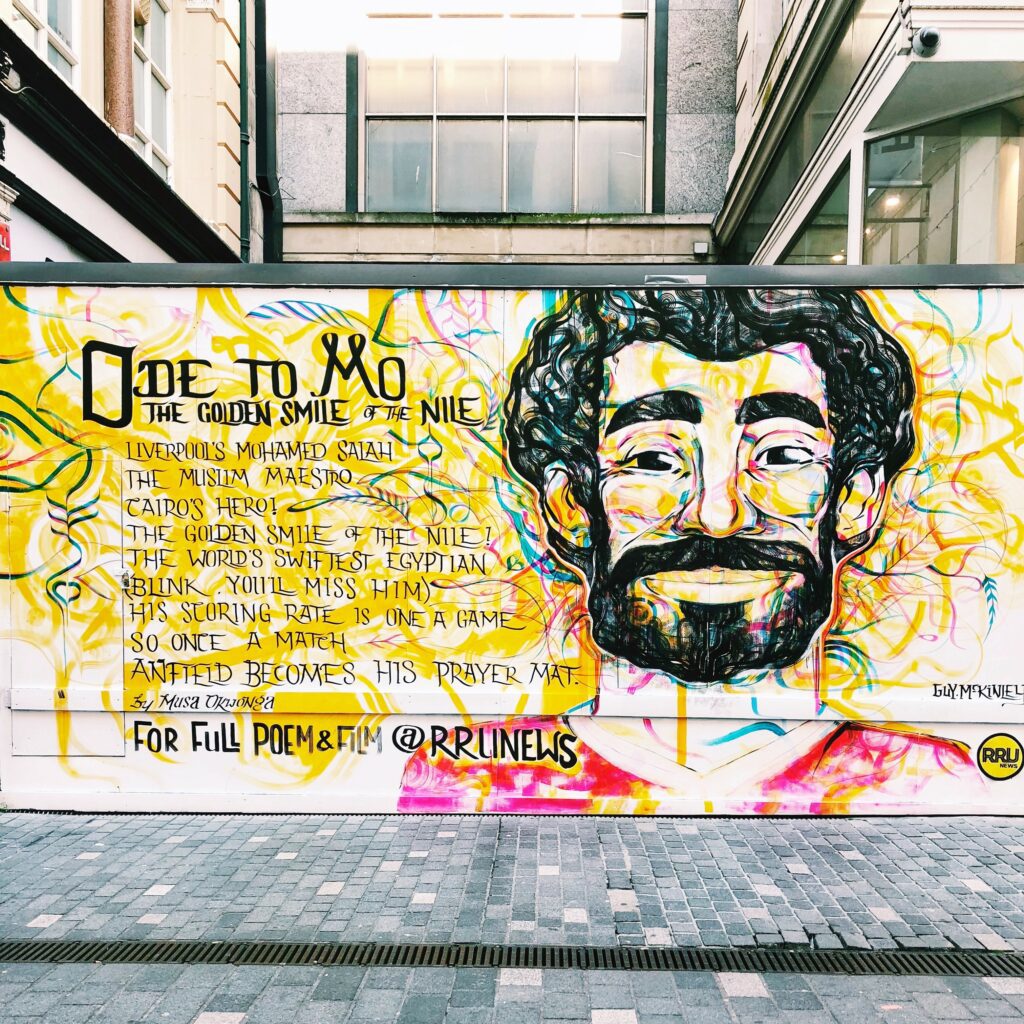 ODE TO MO
THE GOLDEN SMILE OF THE NILE
LIVERPOOL'S MOHAMED SALAH
THE MUSLIM MAESTRO
CAIRO'S HERO!
THE GOLDEN SMILE OF THE NILE!
THE WORLD'S SWIFTEST EGYPTIAN
(BLINK, YOU'LL MISS HIM)
HIS SCORING RATE IS ONE A GAME
SO ONCE A MATCH
ANFIELD BECOMES HIS PRAYER MAT.
By MUSA OKWONGA
FOR FULL POEM & FILM @RRUNEWS
GUY.MCKINLEY
RRU
NEWS